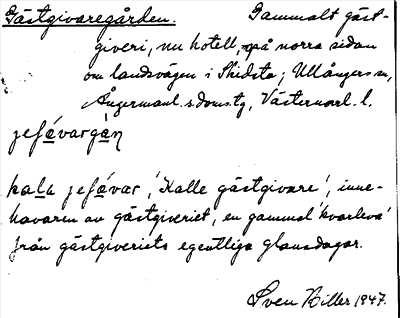 Gästgivaregården. Gammalt gäst-
giveri, nu hotell, på norra sidan
om landsvägen i Skidsta; Ullångers sn,
Ångermanl. s. doms. tg, Västernorrl. l.
jefávargàṇ
kala jefávar, 'Kalle gästgivare', inne-
havaren av gästgiveriet, en gammal 'kvarleva'
från gästgiveriets egentliga glansdagar.
Sven Biller 1947.